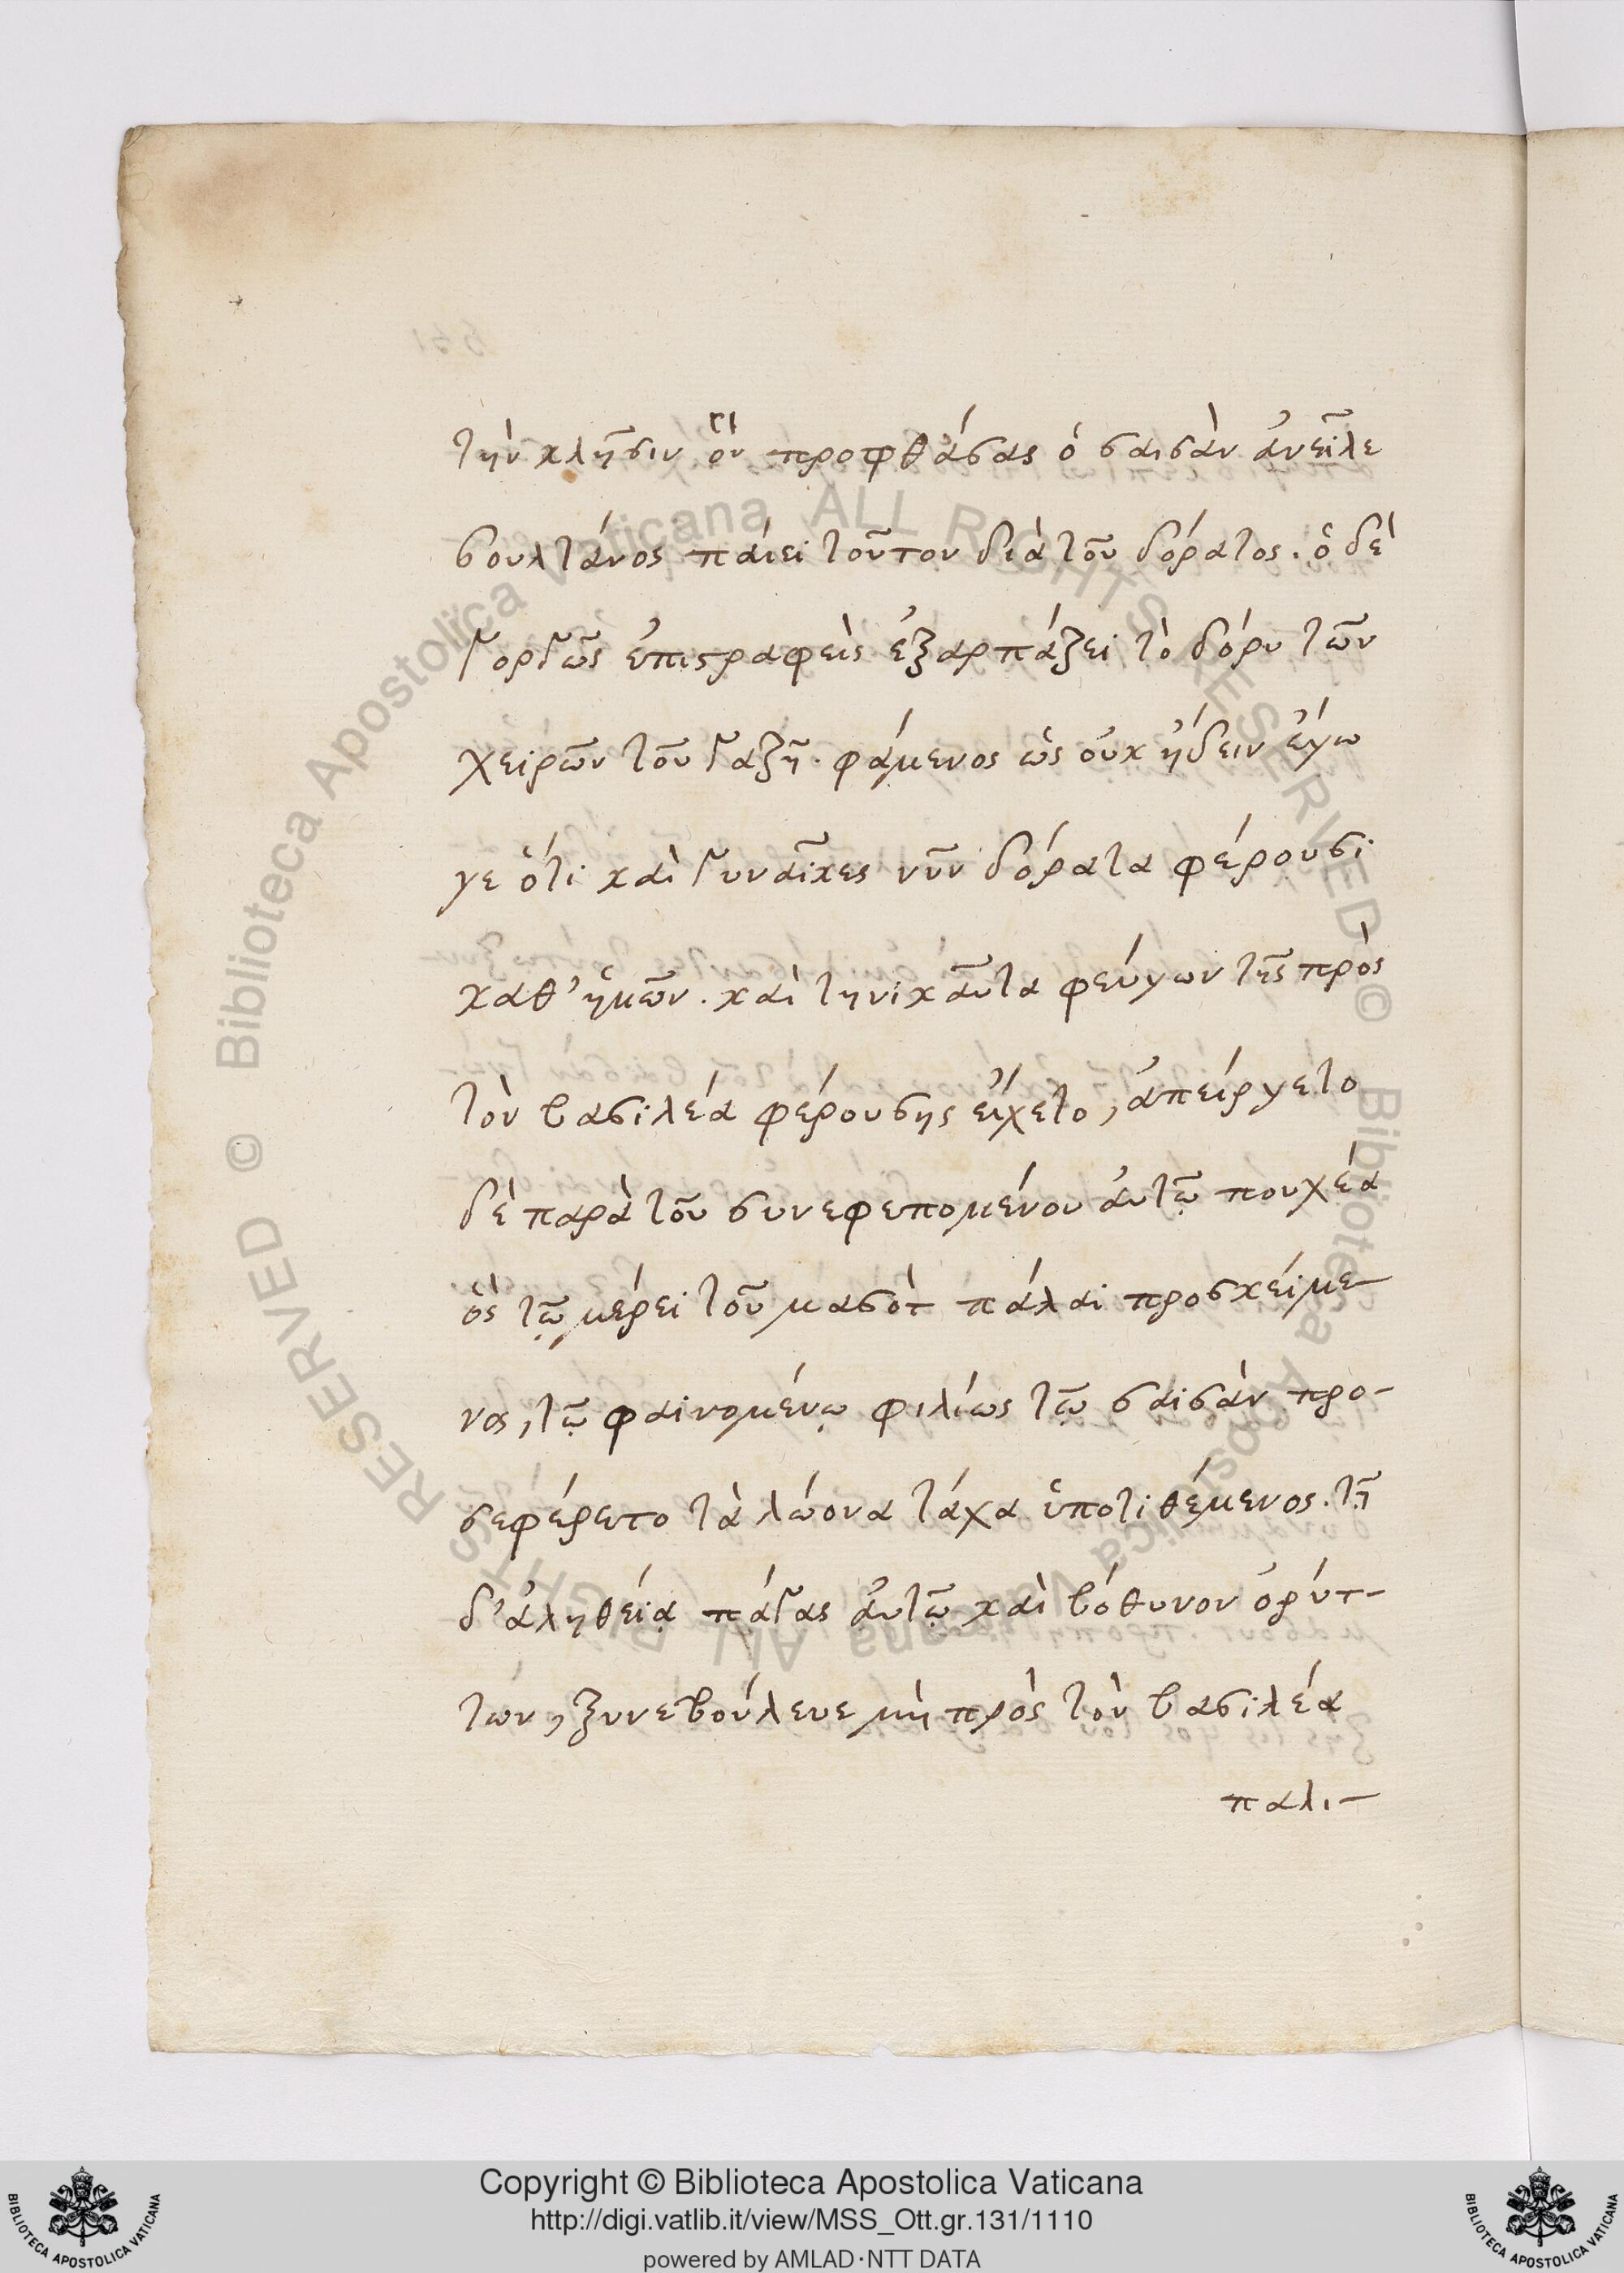 τὴν κλῆσιν ὃν προφθάσας ὁ σαισὰν ἀνεῖλε
σουλτάνος παίει τοῦτον διὰ τοῦ δόρατος. ὁ δὲ
γοργῶς ἐπιστραφεὶς ἐξαρπάζει τὸ δόρυ τῶν
χειρῶν τοῦ γαζῆ. φάμενος ὡς οὐκ ἤδειν ἔγω
γε ὅτι καὶ γυναῖκες νῦν δόρατα φέρουσι
καθ' ἡμῶν. καὶ τηνικαῦτα φεύγων τῆς πρὸς
τὸν βασιλέα φέρουσης εἴχετο, ἀπείργετο
δὲ παρὰ τοῦ συνεφεπομένου αὐτῷ πουχέα
ὃς τῷ μέρει τοῦ μασοὺτ πάλαι προσκείμε-
νος, τῷ φαινομένῳ φιλίως τῷ σαισὰν προ-
σεφέρετο τὰ λώονα τάχα ὑποτιθέμενος. τῇ
δ' ἀληθείᾳ πάγας αὐτῷ καὶ βόθυνον ὀρύτ-
των, ξυνεβούλευε μὴ πρὸς τὸν βασιλέα
παλι-
Copyright © Biblioteca Apostolica Vaticana
http://digi.vatlib.it/view/MSS_Ott.gr.131/1110
powered by AMLAD·NTT DATA
© Biblioteca Apostolica Vaticana ALL RIGHTS RESERVED
© Biblioteca Apostolica Vaticana ALL RIGHTS RESERVED
BIBLIOTECA APOSTOLICA VATICANA
BIBLIOTECA APOSTOLICA VATICANA